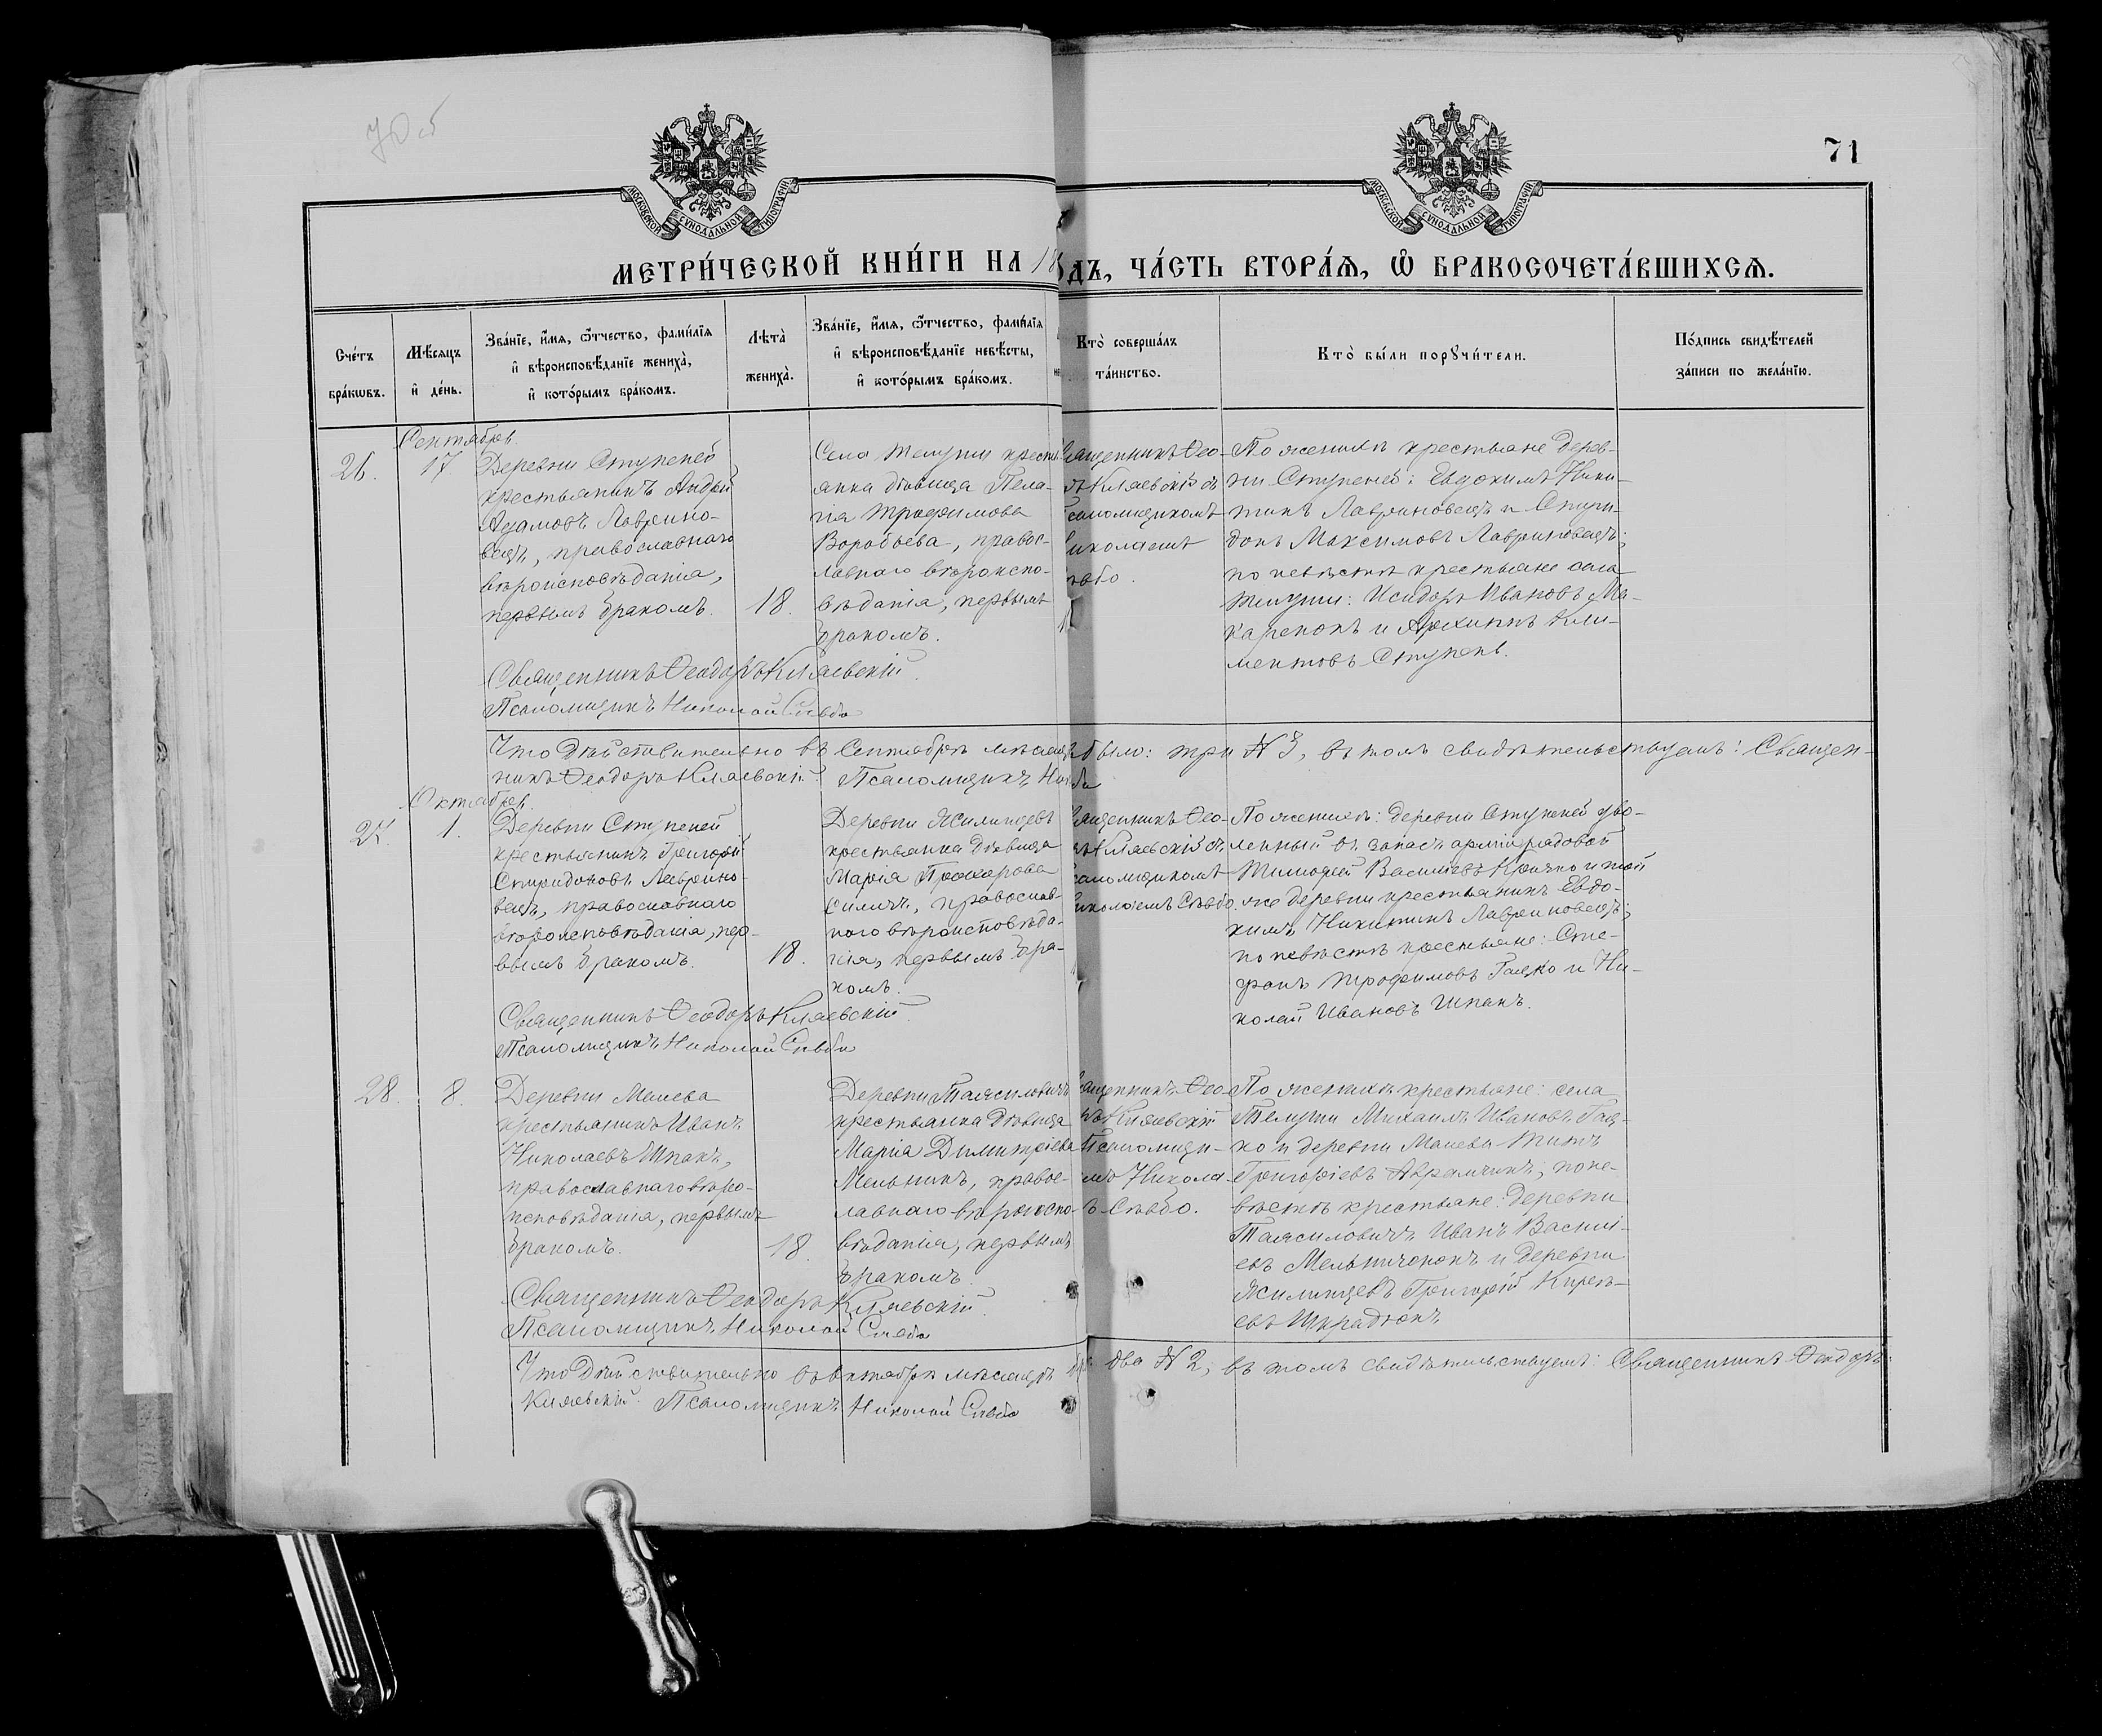 70 об
71
МОСКОВСКОЙ СѴНОДАЛЬНОЙ ТИПОГРАФІИ
МОСКОВСКОЙ СѴНОДАЛЬНОЙ ТИПОГРАФІИ
МЕТРИ́ЧЕСКОЙ КНИ́ГИ НА 18
ДЪ, ЧА́СТЬ ВТОРА́Ѧ, Ѽ БРАКОСОЧЕТА́ВШИХСѦ.
Сче́тъ
бра́кѡвъ.
Мѣ́сѧцъ
и҆ де́нь.
Зва́нїе, и҆́мѧ, ѻ҆́тчество, фами́лїѧ
и҆ вѣроисповѣ́данїе жениха̀,
и҆ кото́рымъ бра́комъ.
Лѣ́та̀
жениха̀.
Зва́нїе, и҆́мѧ, ѻ҆́тчество, фами́лїѧ
и҆ вѣроисповѣ́данїе невѣ́сты,
и҆ кото́рымъ бра́комъ.
Кто̀ соверша́лъ
та́инство.
Кто̀ бы́ли порꙋчи́тели.
По́дпись свидѣ́телей
за́писи по жела́нїю.
26.
Сентябрь
17
Деревни Ступеней
крестьянинъ Андрей
Адамовъ Лаврино-
вецъ, православнаго
вѣроисповѣданія,
первымъ бракомъ.
18.
Села Телуши кресть
янка дѣвица Пела-
гія Трофимова
Воробьева, правос-
лавнаго вѣроиспо-
вѣданія, первымъ
бракомъ.
ященникъ Ѳео-
ъ Кляевскій съ
саломщикомъ
иколаемъ
ѣбо.
По женихѣ крестьяне дерев-
ни Ступеней: Евдокимъ Ники-
тинъ Лавриновецъ и Спири-
донъ Максимовъ Лавриновецъ;
по невѣстѣ крестьяне села
Телуши: Исидоръ Ивановъ Ма-
каренокъ и Архиппъ Кли-
ментовъ Ступень.
Священникъ Ѳеодоръ Кляевскій.
Псаломщикъ Николай Слѣбо
Что дѣйствительно въ Сентябрѣ мѣсяцѣ было: три № 3, въ томъ свидѣтельствуемъ: Священ-
никъ Ѳеодоръ Кляевскій. Псаломщикъ Ни
27.
Октябрь
1.
Деревни Ступеней
крестьянинъ Григорій
Спиридоновъ Лаврино-
вецъ, православнаго
вѣроисповѣданія, пер-
вымъ бракомъ.
18.
Деревни Ясилицевъ
крестьянка дѣвица
Марія Прохорова
Силичъ, православ-
наго вѣроисповѣда-
нія, первымъ бра-
комъ.
ященникъ Ѳео-
ъ Кляевскій съ
саломщикомъ
иколаемъ Слѣбо.
По женихѣ: деревни Ступеней уво-
ленный въ запасъ арміи рядовой
Тимофей Васильевъ Кричко и той
же деревни крестьянинъ Евдо-
кимъ Никитинъ Лавриновецъ;
по невѣстѣ крестьяне: Сте-
фанъ Трофимовъ Гацко и Ни-
колай Ивановъ Шпакъ.
Священникъ Ѳеодоръ Кляевскій.
Псаломщикъ Николай Слѣбо
28.
8.
Деревни Малева
крестьянинъ Иванъ
Николаевъ Шпакъ,
православнаго вѣро-
исповѣданія, первымъ
бракомъ.
18.
Деревни
крестьянка дѣвица
Марія Димитріева
Мельникъ, правос-
лавнаго вѣроиспо-
вѣданія, первымъ
бракомъ.
ященникъ Ѳео-
ъ Кляевскій
Псаломщи-
мъ Никола-
ъ Слѣбо.
По женихѣ крестьяне: села
Телуши Михаилъ Ивановъ Гац-
ко и деревни Малева Титъ
Григоріевъ Авраменко; по не-
вѣстѣ крестьяне: деревни
Иванъ Василі-
евъ Мельниченокъ и деревни
Ясилицевъ Григорій Кирѣ-
евъ
Священникъ Ѳеодоръ Кляевскій.
Псаломщикъ Николай Слѣбо
Что дѣйствительно въ Октябрѣ мѣсяцѣ два № 2, въ томъ свидѣтельствуемъ: Священникъ Ѳеодоръ
Кляевскій. Псаломщикъ Николай Слѣбо